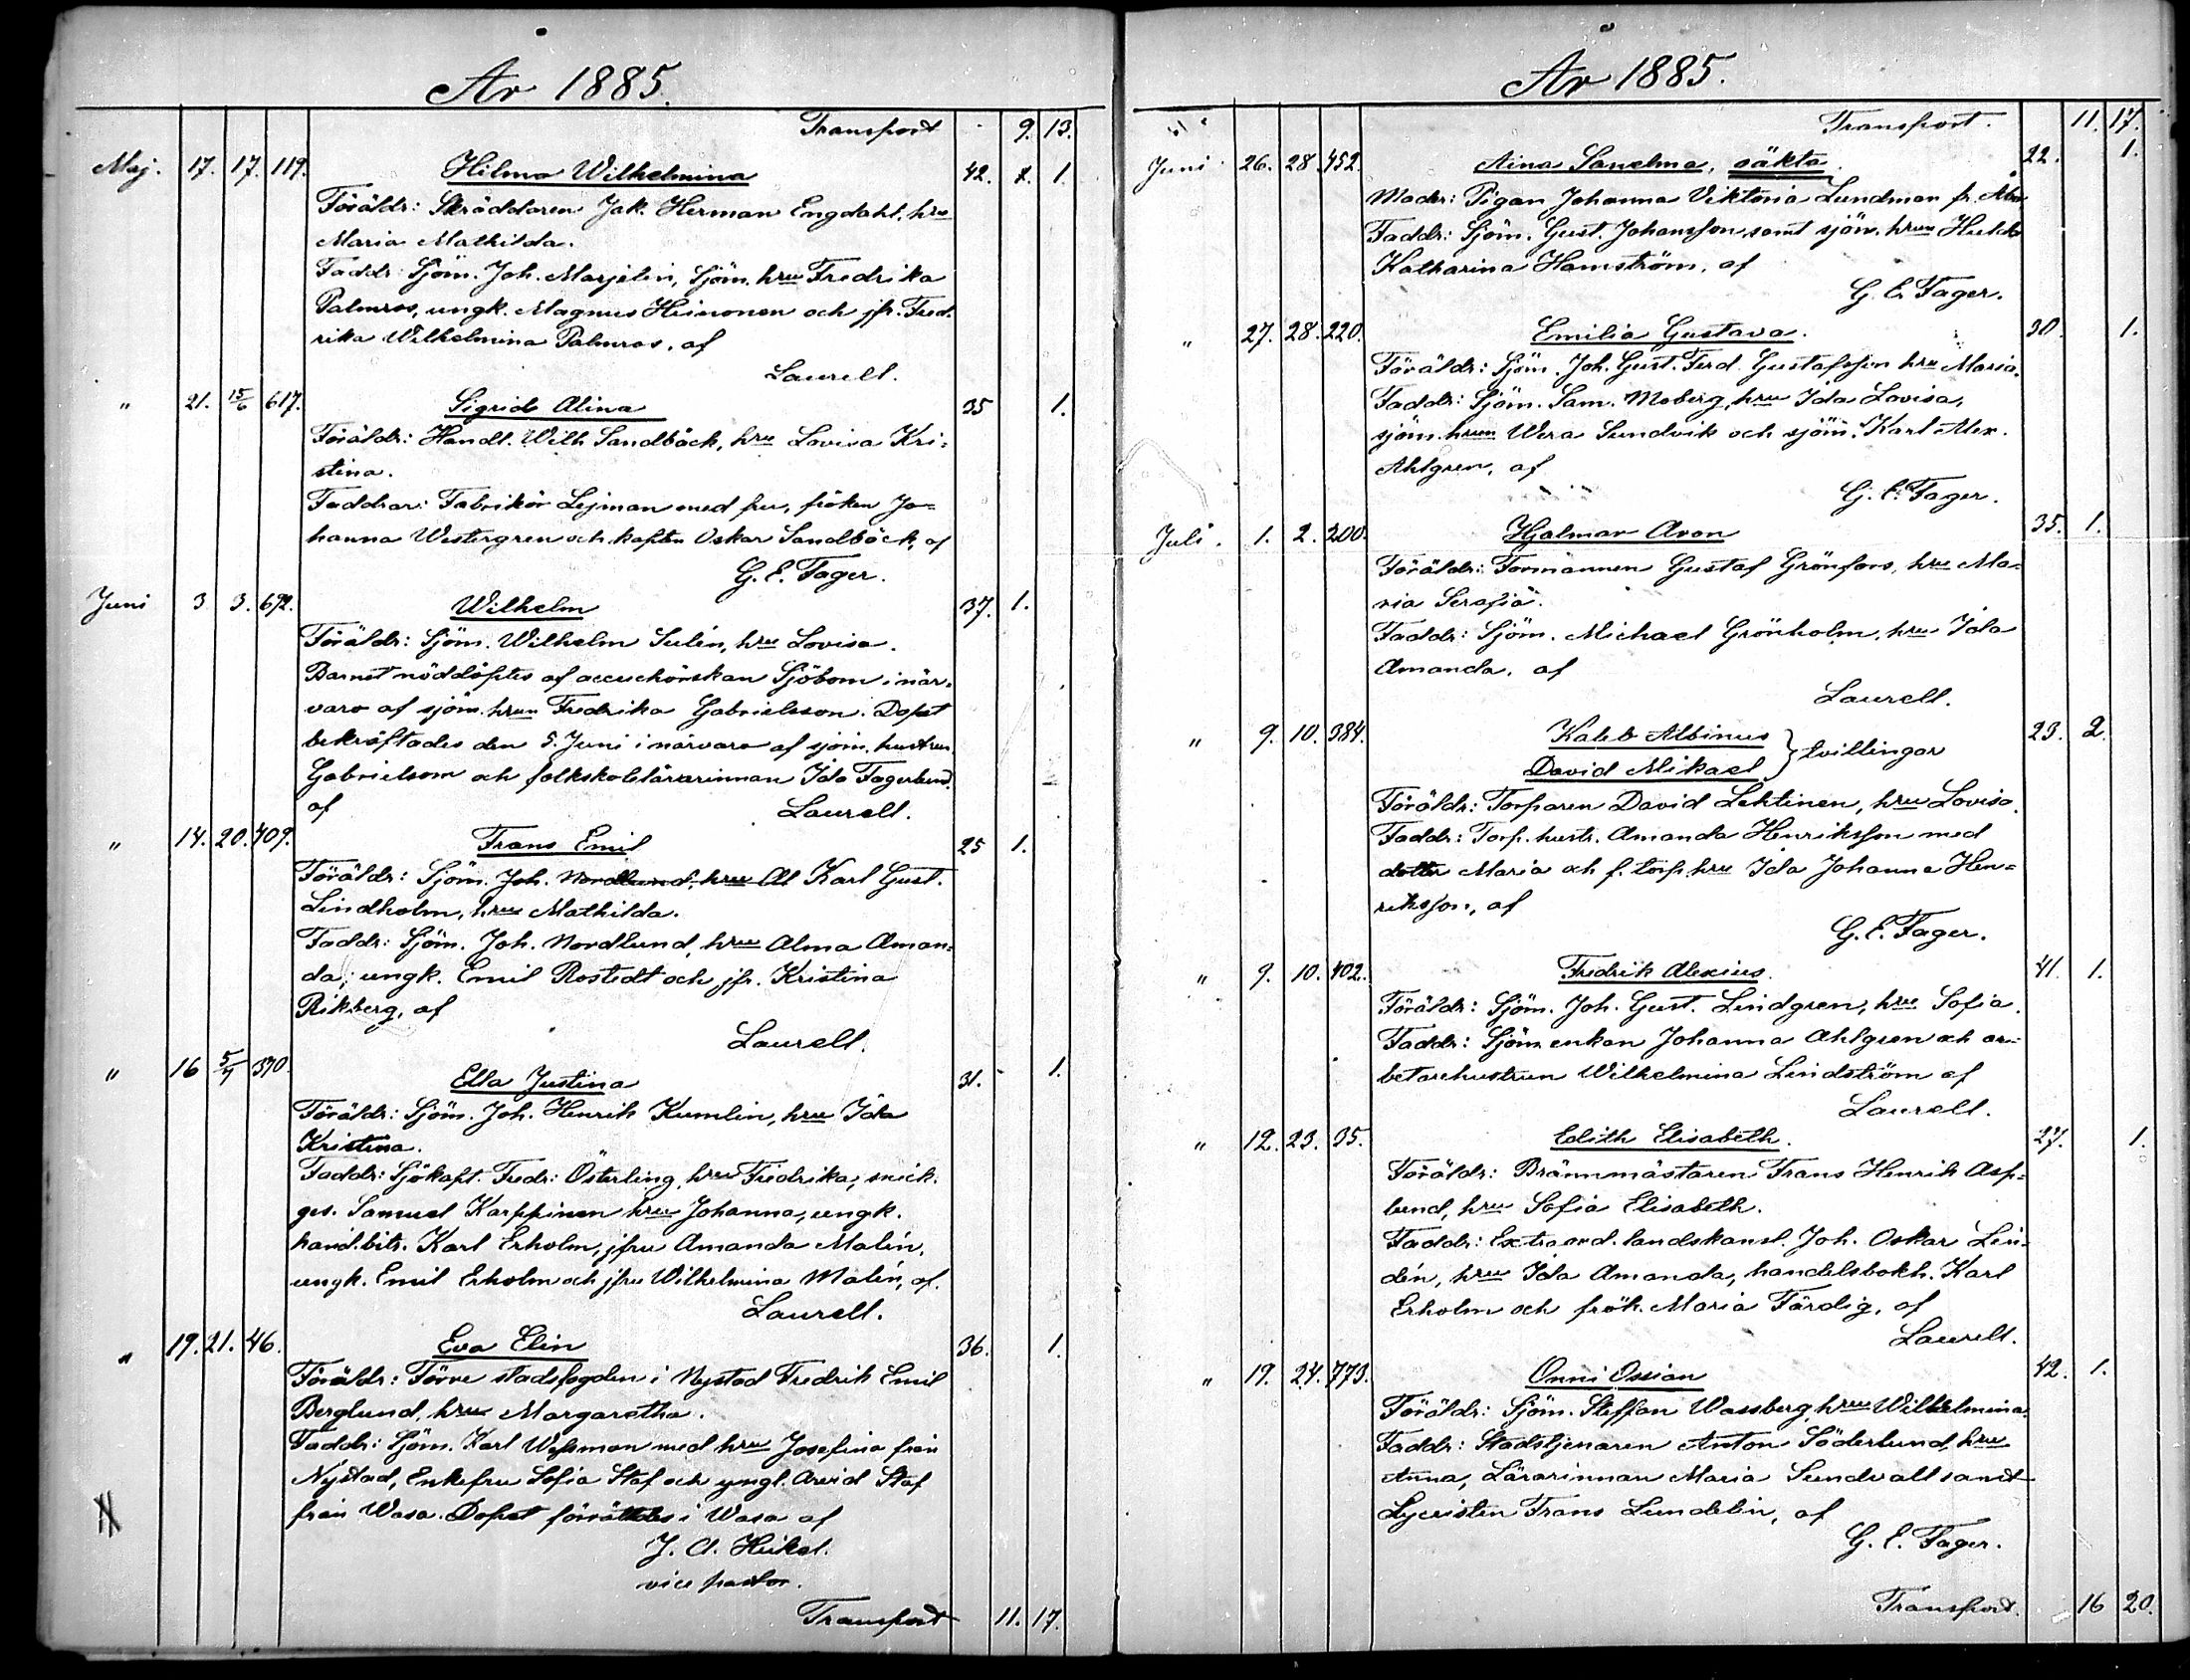 År 1885.
Transport 9. 13.
Maj. 17. 17. 119. Hilma Wilhelmina 42. 1. 1.
Föräldr: Skräddaren Jak. Herman Engdahl, hru
Maria Mathilda.
Faddr: Sjöm. Joh. Marjelin, Sjöm. hru Fredrika
Palmros, ungk. Magnus Heinonen och jfr. Fred-
rika Wilhelmina Palmros, af
Laurell.
" 21. 15/6 617. Sigrid Alina 35 1.
Föräldr: Handl. Wilh. Sandbäck, hru Lovisa Kri-
stina.
Faddrar: Fabrikör Lejman med fru, fröken Jo-
hanna Westergren och kapten Oskar Sandbäck, af
G. E. Fager.
Juni 3 3. 692. Wilhelm 37. 1.
Föräldr: Sjöm. Wilhelm Sulén, hru Lovisa.
Barnet nöddöptes af accuchörskan Sjöbom i när-
varo af sjöm. hrun Fredrika Gabrielsson. Dopet
bekräftades den 5. Juni i närvaro af sjöm. hustrun
Gabrielsson och folkskolelärarinnan Ida Fagerlund
af Laurell.
" 14. 20. 409. Frans Emil 25 1.
Föräldr: Sjöm. Joh. Nordlund, hru Al Karl Gust.
Lindholm, hru Mathilda.
Faddr: Sjöm. Joh. Nordlund, hru Alma Aman-
da; ungk. Emil Rostedt och jfr. Kristina
Rikberg, af
Laurell.
" 16 5/7 370. Ella Justina 31. 1.
Föräldr: Sjöm. Joh. Henrik Kumlin, hru Ida
Kristina.
Faddr: Sjökapt. Fredr: Österling, hru Fredrika; snick.
ges. Samuel Karppinen hru Johanna, ungk.
hand.bitr. Karl Erholm, jfru Amanda Malén,
ungk. Emil Erholm och jfru Wilhelmina Malén, af.
Laurell.
" 19. 21. 46. Eva Elin 36. 1.
Föräldr: Förre stadsfogden i Nystad Fredrik Emil
Berglund, hru Margaretha.
Faddr: Sjöm. Karl Wessman med hru Josefina från
Nystad, Enkefru Sofia Staf och yngl. Arvid Staf
från Wasa. Dopet förrättades i Wasa af
J. A. Heikel.
vice pastor.
Transport 11. 17.
År 1885.
Transport. 11. 17.
Juni 26. 28. 452. Aina Sanelma, oäkta. 22. 1.
Moder: Pigan Johanna Viktoria Lundman fr. Åbo
Faddr: Sjöm. Gust. Johansson samt sjöm. hrun Hulda
Katharina Hamström, af
G. E. Fager.
" 27. 28. 220. Emilia Gustava. 30. 1.
Föräldr: Sjöm. Joh. Gust. Ferd. Gustafsson hru Maria.
Faddr: Sjöm. Sam. Moberg, hru Ida Lovisa,
sjöm. hrun Wera Sundvik och sjöm. Karl Alex.
Ahlgren, af
G. E. Fager.
Juli. 1. 2. 200. Hjalmar Aron 35. 1.
Föräldr: Formannen Gustaf Grönfors, hru Ma-
ria Serafia.
Faddr: Sjöm. Michael Grönholm, hru Ida
Amanda, af
Laurell.
" 9. 10. 384. Kaleb Albinus 23. 2.
David Mikael } tvillingar
Föräldr: Torparen David Lehtinen, hru Lovisa.
Faddr: Torp. hustr. Amanda Henriksson med
dotter Maria och f. torp. hru Ida Johanna Hen-
riksson, af
G. E. Fager.
" 9. 10. 402. Fredrik Alexius. 41. 1.
Föräldr: Sjöm. Joh. Gust. Lindgren, hru Sofia.
Faddr: Sjöm. enkan Johanna Ahlgren och ar-
betarehustrun Wilhelmina Lindström af
Laurell.
" 12. 23. 35. Edith Elisabeth. 27. 1.
Föräldr: Brännmästaren Frans Henrik Asp-
lund, hru Sofia Elisabeth.
Faddr: Extraord. landskansl. Joh. Oskar Lin-
dén, hru Ida Amanda, handelsbokh. Karl
Erholm och frök. Maria Färdig, af
Laurell.
" 19. 24. 773. Onni Ossian 42. 1.
Föräldr: Sjöm. Steffan Wassberg, hru Wilhelmina.
Faddr: Stadstjenaren Anton Söderlund, hru
Anna, Lärarinnan Maria Sundvall samt
Lyceisten Frans Lundelin, af
G. E. Fager.
Transport. 16 20.